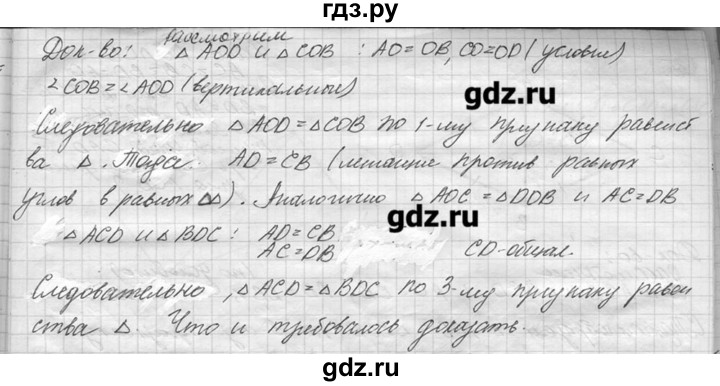 гдз.ру
рассмотрим
Док-во: △ AOD и △ COB : AO = OB, CO = OD (условия)
∠ COB = ∠ AOD (вертикальные)
gdz.ru
Следовательно △ AOD = △ COB по 1-му признаку равенст
ва △. Тогда. AD = CB (лежащие против равных
углов в равных △△). Аналогично △ AOC = △ DOB и AC = DB
gdz.ru
△ ACD и △ BDC : AD = CB
AC = DB CD - общая.
Следовательно, △ ACD = △ BDC по 3-му признаку равен
ства △. Что и требовалось доказать.
gdz.ru